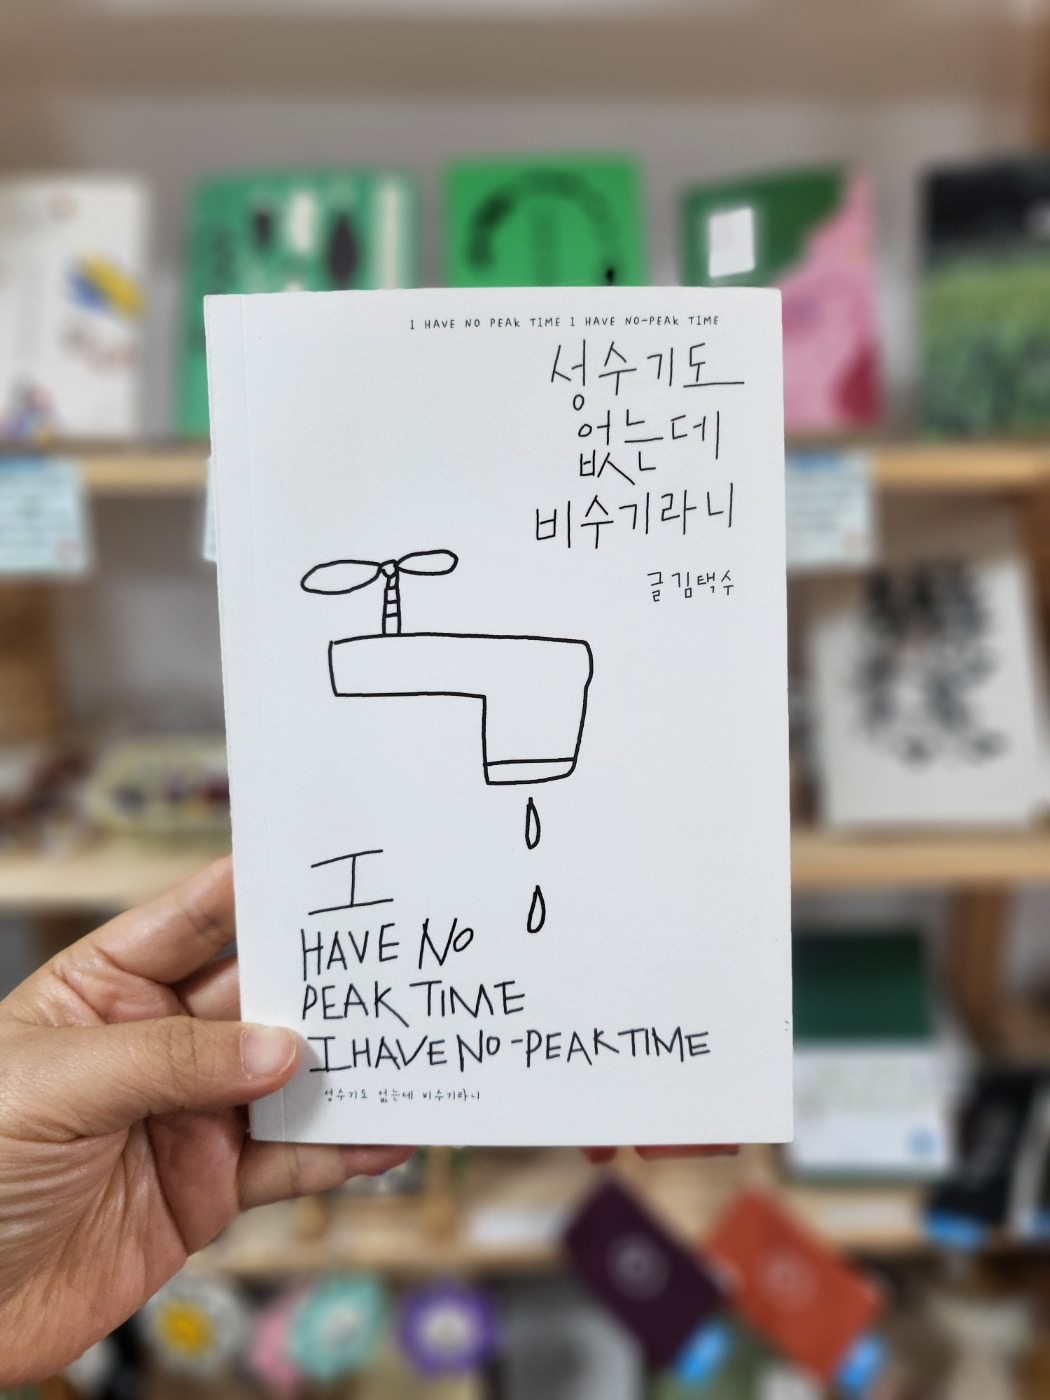 I HAVE NO PEAK TIME I HAVE NO-PEAK TIME
성수기도
없는데
비수기라니
글 김택수
I
HAVE NO
PEAK TIME
I HAVE NO-PEAK TIME
성수기도 없는데 비수기라니